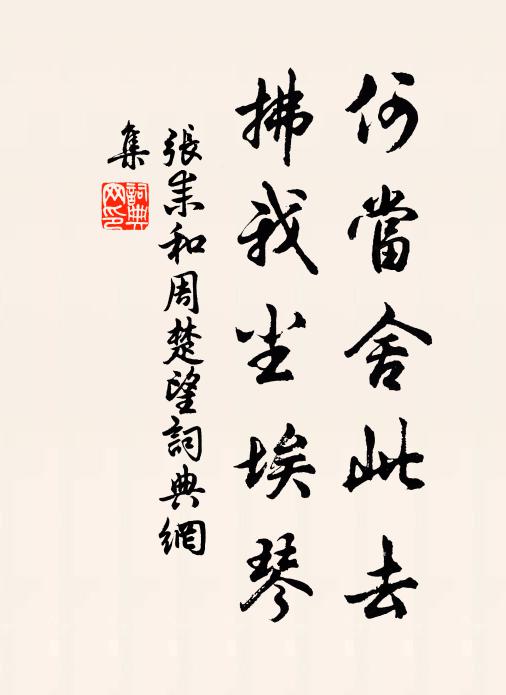 何當舍此去
拂我尘埃琴
張耒和周楚望詞典網
集
詞典
网印